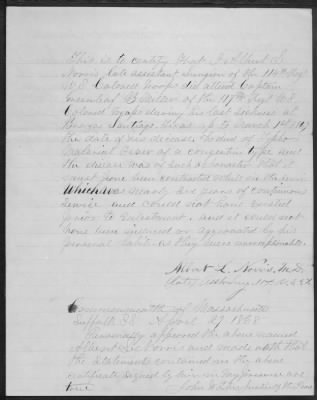 This is to certify that I Albert L.
Norris, late assistant Surgeon of the 114th Regt
U.S. Colored Troops did attend Captain
Greenleaf B of the 117th Regt U.S.
Colored Troops during his last sickness at
Brazos Santiago, Texas up to March 1st
the date of his decease. He died of Typho
Malarial Fever of a congestive type and
the disease was of such a character that it
must have been contracted while in the service
Which was nearly five years of continuous
service and could not have existed
prior to Enlistment, and it could not
have been induced or aggravated by his
personal habits as they were unexceptionable.
Albert L. Norris, M.D.
Late Asst Surg 114 U.S.C.T.
Commonwealth of Massachusetts
Suffolk SS April 27 1868
Personally appeared the above named
Albert L. Norris and made oath that
the statements contained in the above
certificate signed by him in my presence are
true
John Justice of the Peace